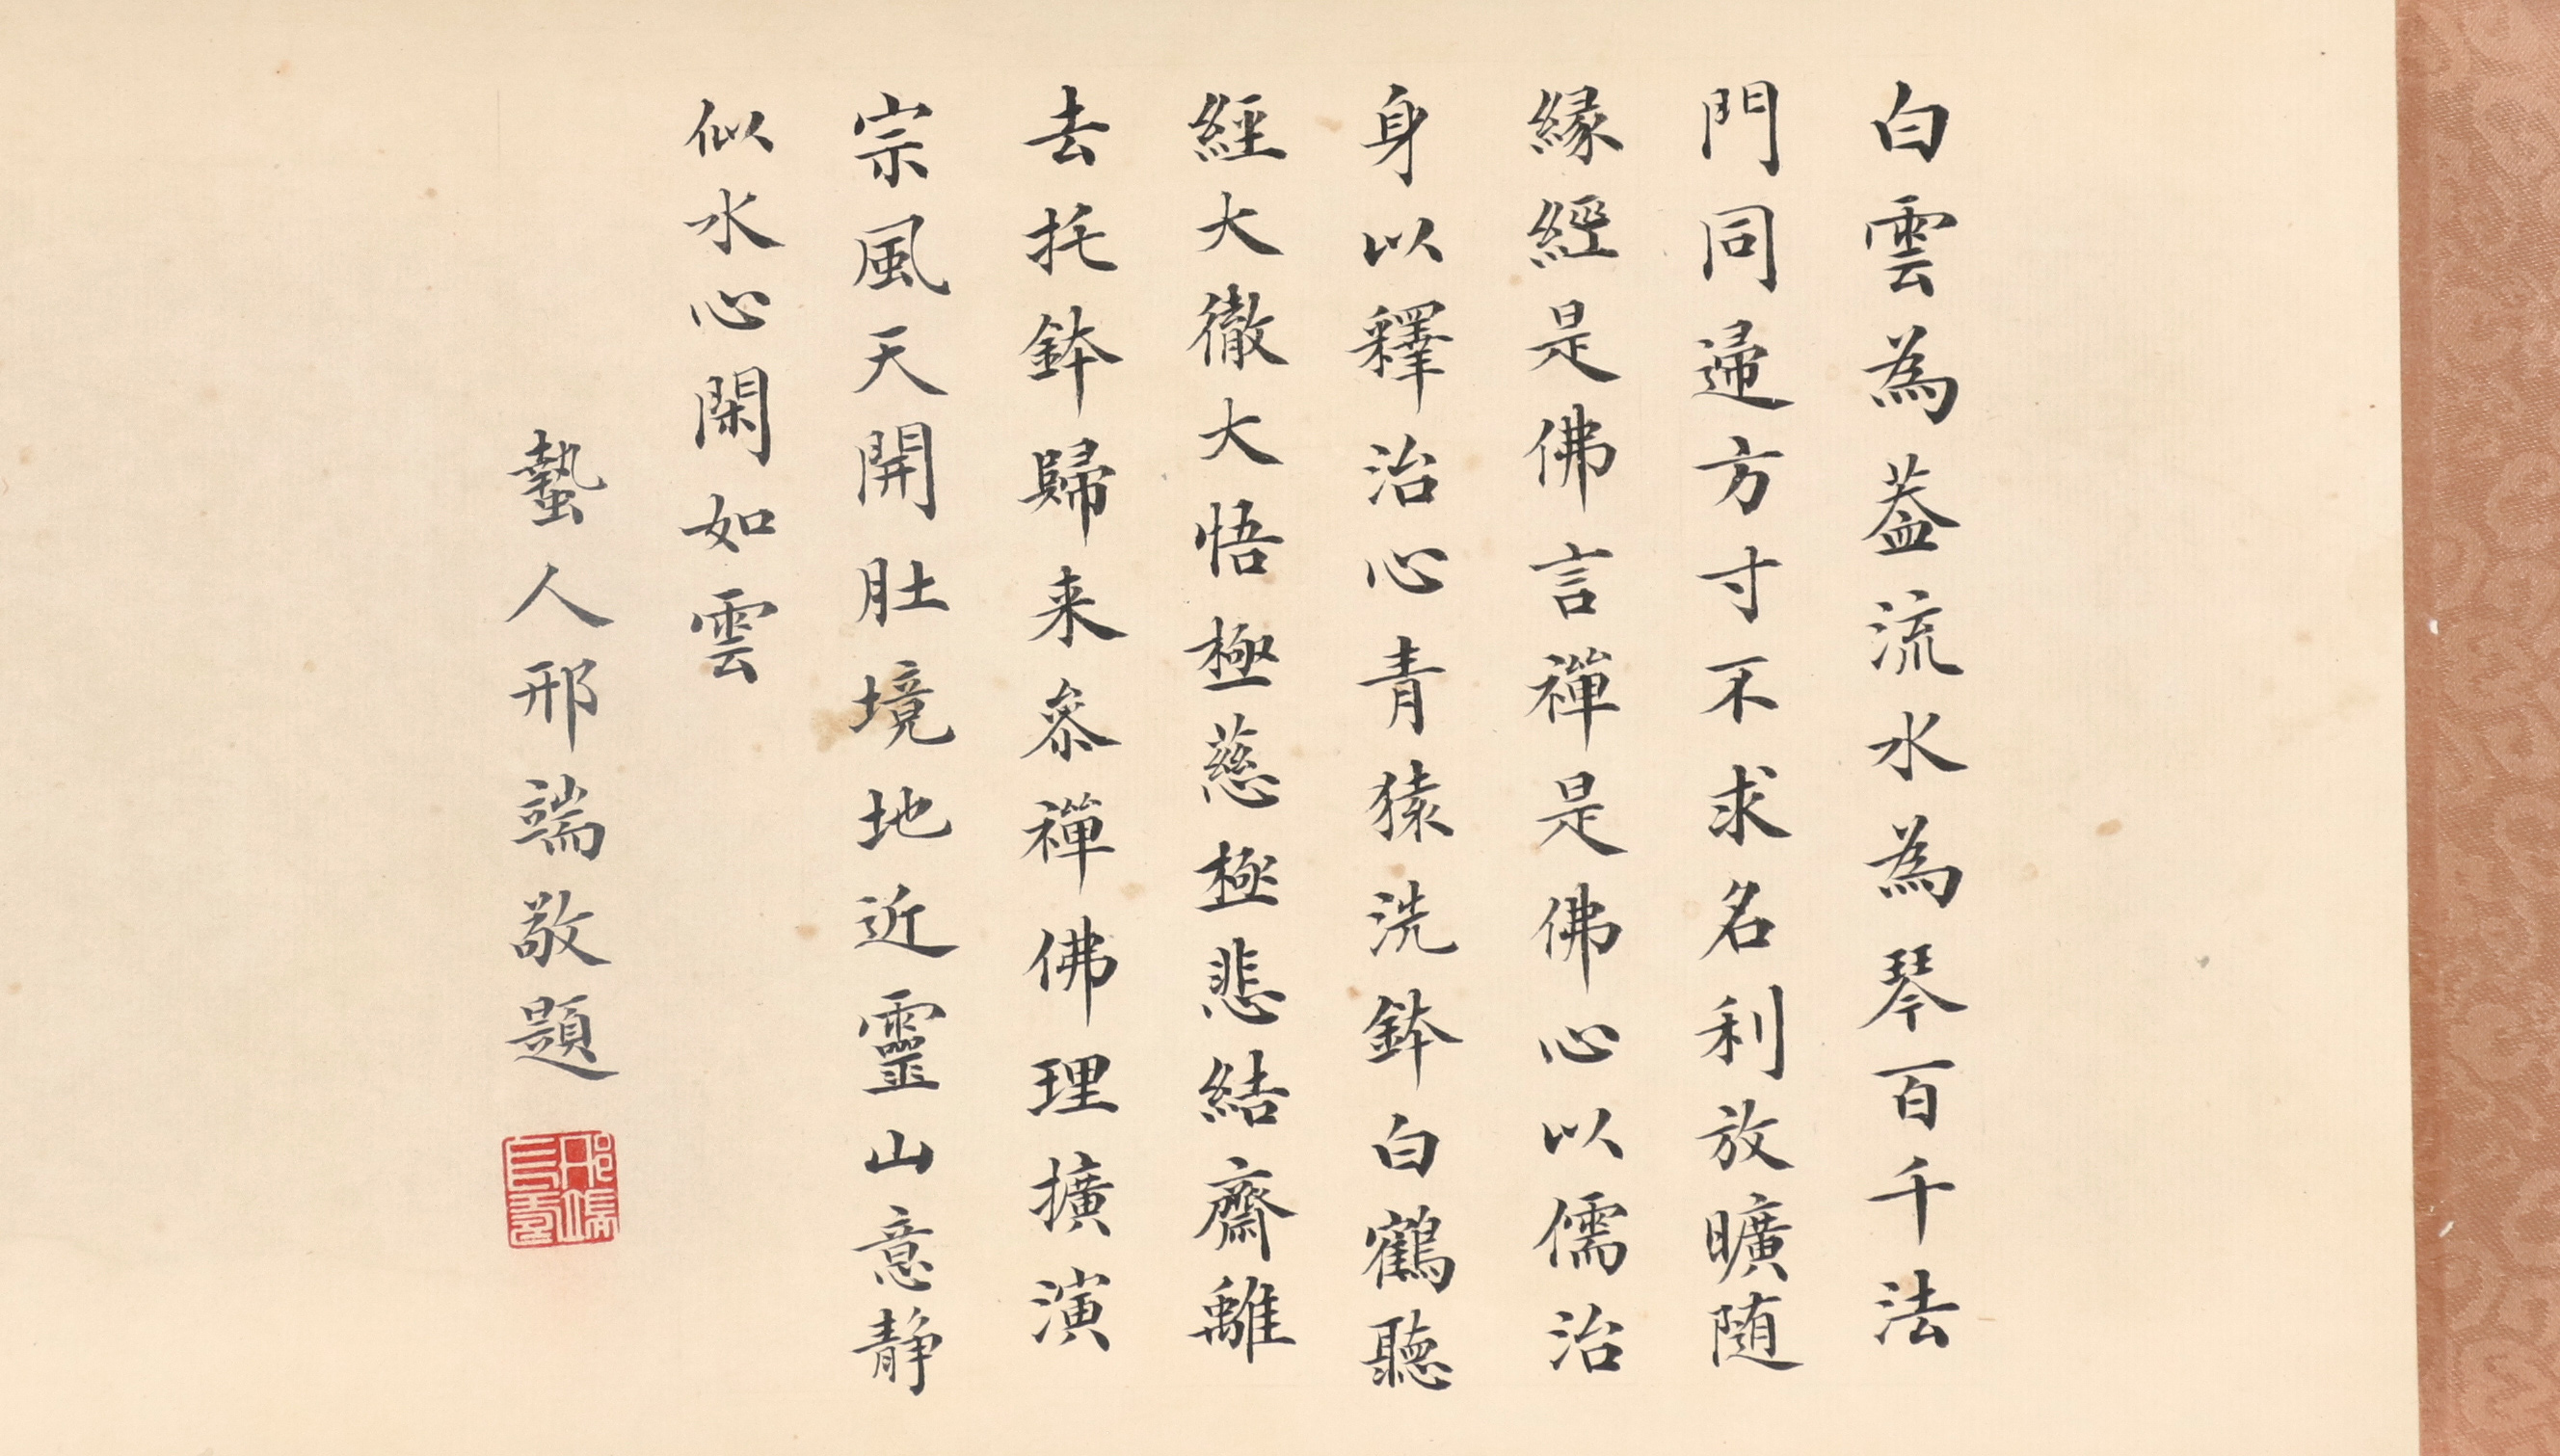 白雲為蓋流水為琴百千法
門同歸方寸不求名利放曠随
縁經是佛言禪是佛心以儒治
身以釋治心青猿洗鉢白鶴聽
經大徹大悟極慈極悲結齋離
去托鉢歸来叅禪佛理擴演
宗風天開肚境地近靈山意静
似水心閑如雲
蟄人邢端敬題
邢端